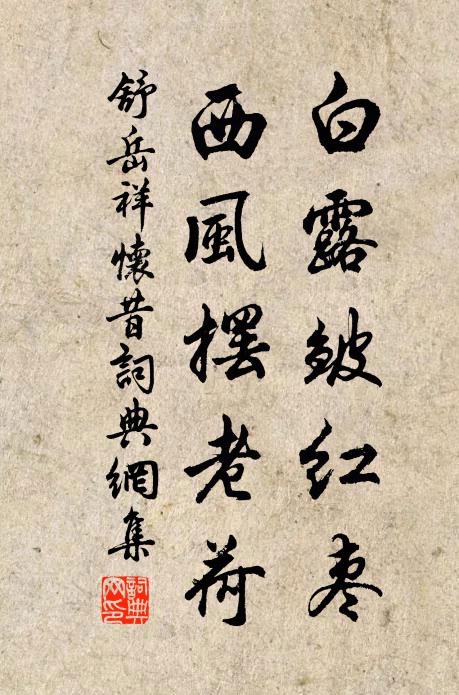 白露皴紅枣
西風擺老荷
舒岳祥懷昔詞典網集
詞典网印